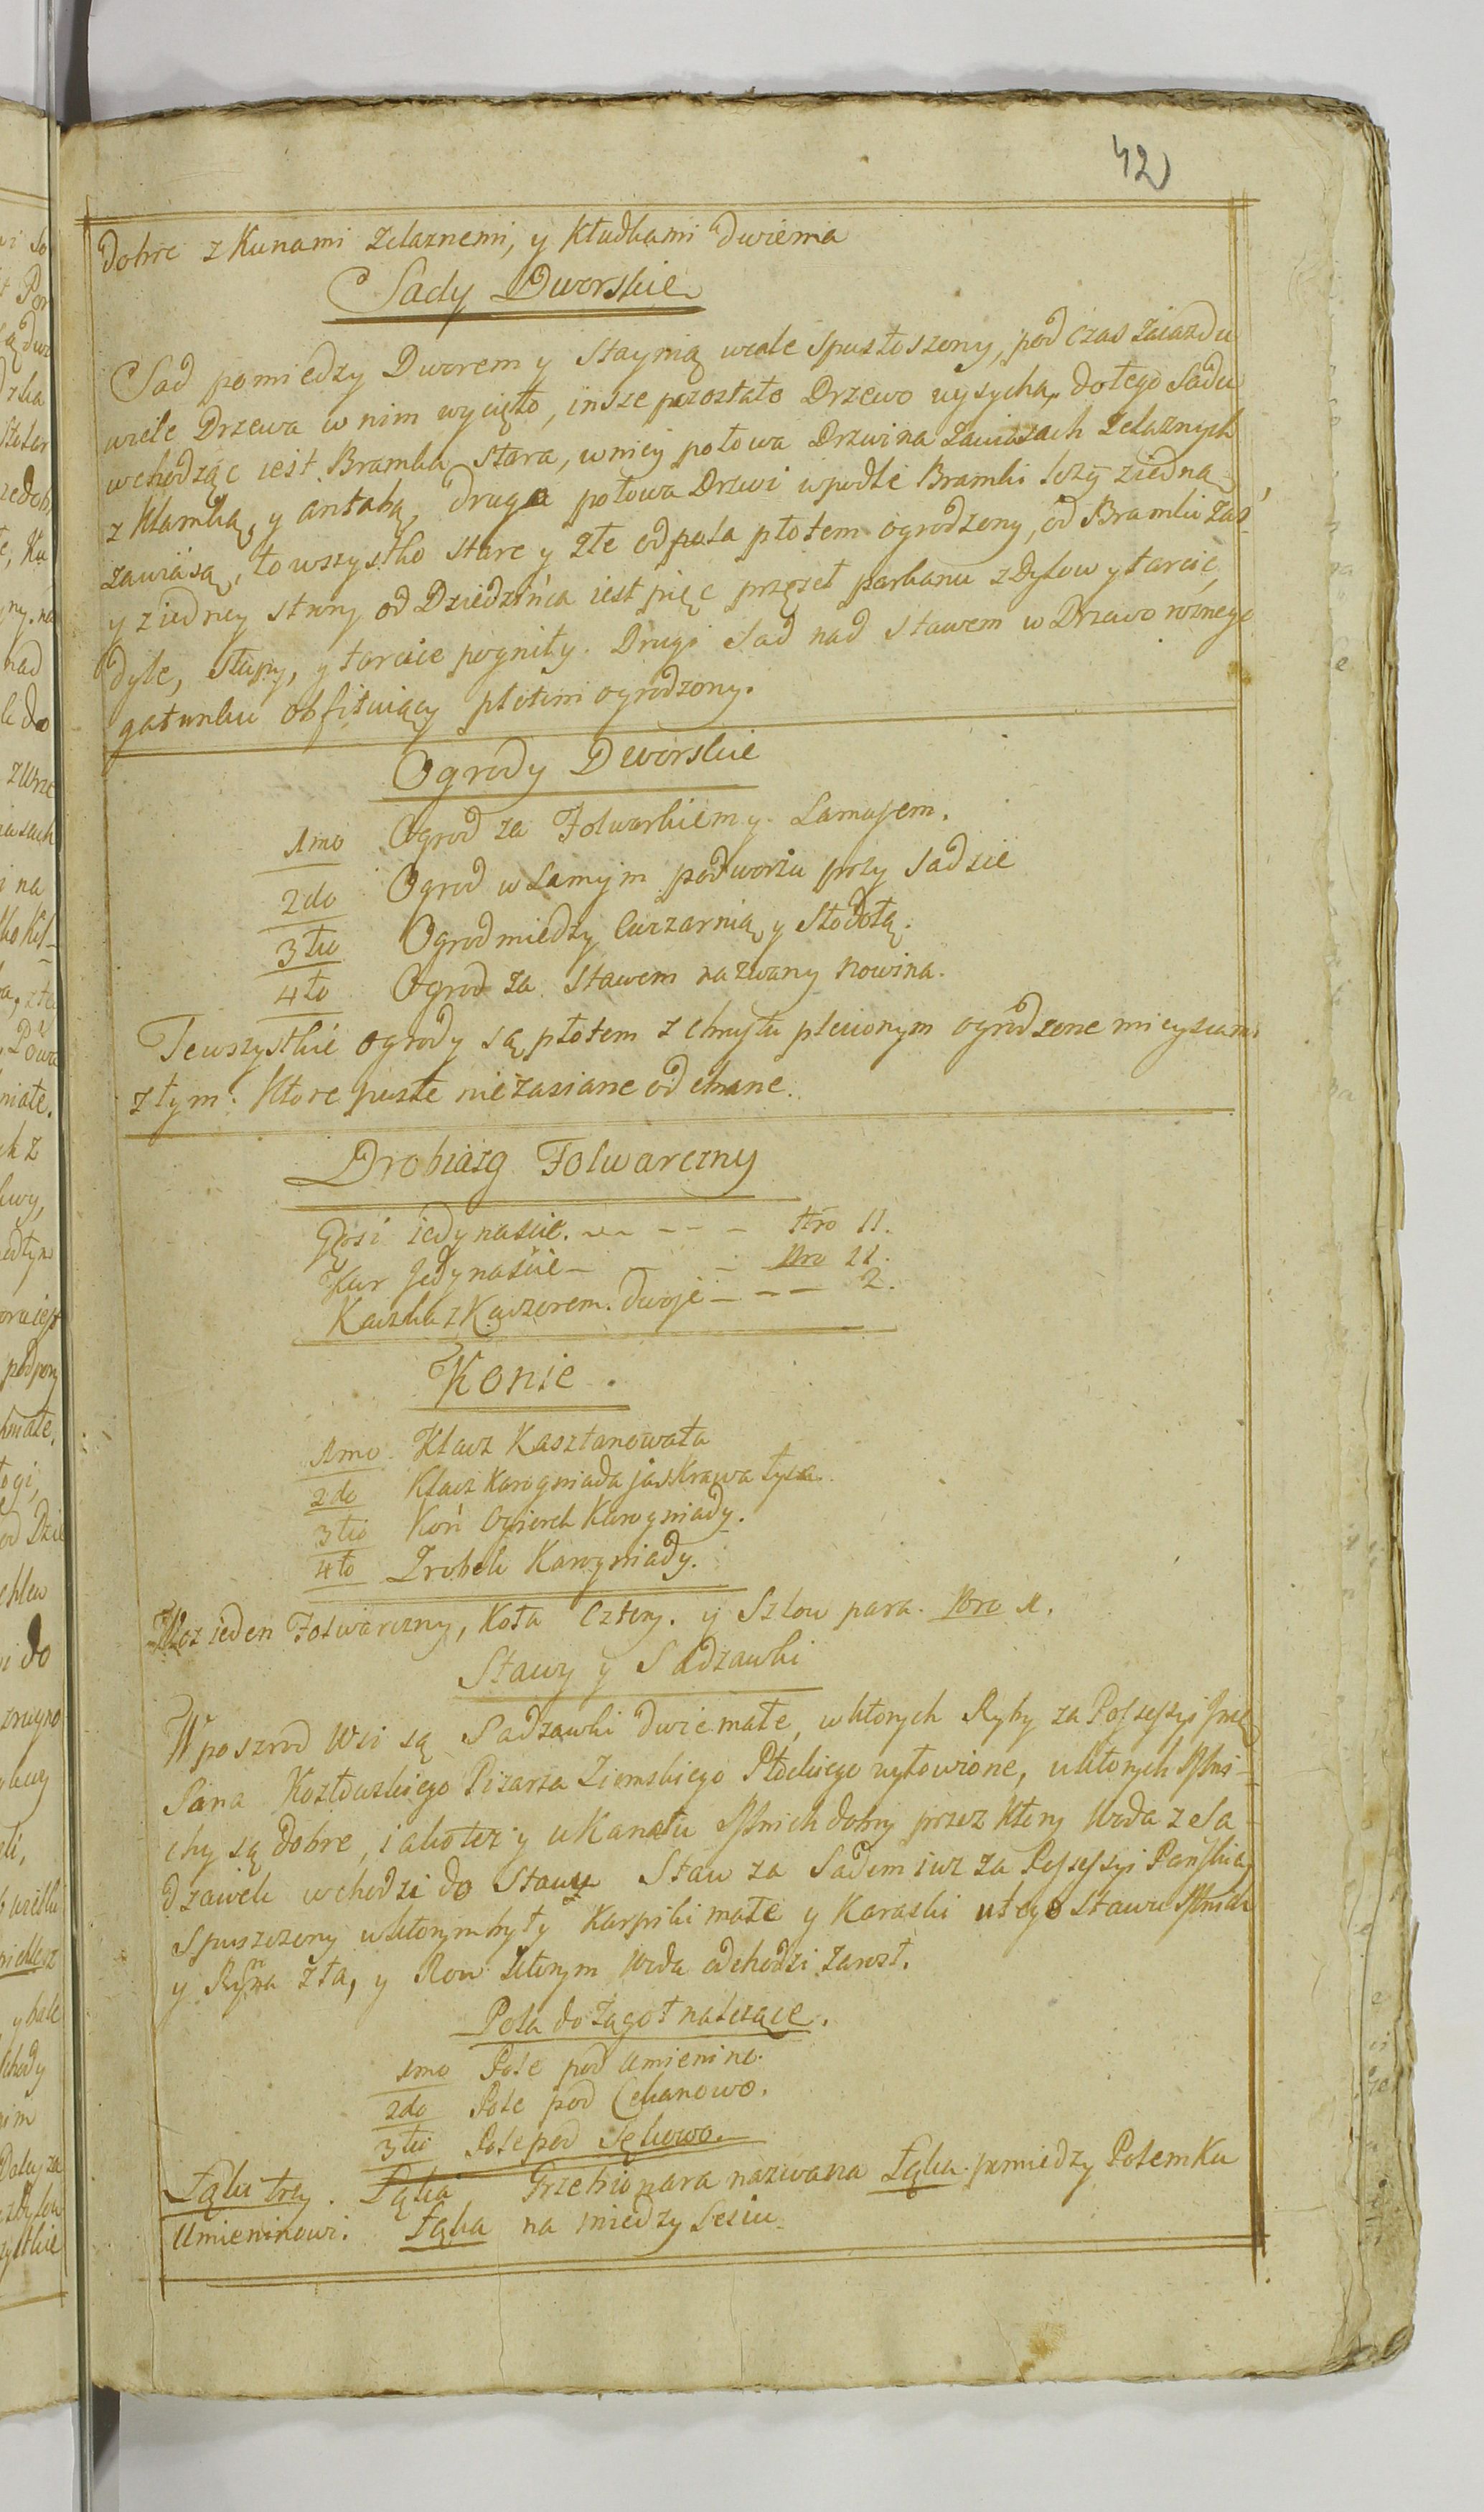 42
dobre z Kunami zelaznemi, y Kłudkami dwiema
Sady Dworskie
Sad pomiedzy Dworem y Staynią wcale spustoszony, pod czas Zaiazdu
wiele Drzewa w nim wycięto, insze pozostało Drzewo usycha, do tego Sadu
wchodząc iest Bramka stara, w niey połowa Drzwi na zawiasach zelaznych
z klamką, y antabą, druga połowa Drzwi wpodle Bramki leży z iedną
zawiasą, to wszystko stare y złe od pola płotem ogrodzony, od Bramki zaś
y z iedney strony od Dziedzińca iest pięc przęseł parkanu z Dylow y tarcic,
dyle, słupy, y tarcice pogniły. Drugi Sad nad stawem w Drzewo roznego
gatunku obfituiący płotem ogrodzony.
Ogrody Dworskie
1mo Ogrod za Folwarkiem y Lamusem.
2do Ogrod w Samym podworzu przy Sadzie
3tio Ogrod miedzy Kurzarnią y Stodołą.
4to Ogrod za Stawem nazwany Nowina.
Te wszystkie ogrody są płotem z chrustu plecionym ogrodzone mieyscami
złym. Ktore puste nie zasiane odebrane.
Drobiazg Folwarczny
Gęsi iedynascie. - - - Nro 11.
Kur Jedynascie - - - Nro 11.
Kaczka z Kaczorem. dwoje - - - 2.
Konie.
1mo Klacz Kasztanowata
2do Klacz Karogniada jaskrawa łysa.
3tio Koń Ogierek Karogniady.
4to Zrobek Karogniady.
Woz ieden Folwarczny, Koła Cztery. y Szlow para. Nro 1.
Stawy y Sadzawki
W poszrod Wsi są Sadzawki dwie małe, w ktorych Ryby za Possessyi Jmć
Pana Kozłowskiego Pisarza Ziemskiego Płockiego wyłowione, u ktorych Mni-
chy są dobre, iako też y u Kanału Mnich dobry przez ktory Woda z Sa-
dzawek wchodzi do Stawu Staw za Sadem iuz za Possessyi Pańskiey
Spuszczony w ktorym były Karpiki małe y Karaski u tego Stawu Mnich
y Rynna zła, y Row ktorym Woda odchodzi zarosł.
Pola do Łagot nalezące.
1mo Pole pod Umienino.
2do Pole pod Cekanowo.
3tio Pole pod Sękowo.
Łąki trzy. Łąka Grzebionara nazwana Łąka pomiedzy Polem Ku
Umieninowi. Łąka na miedzy Lesiu